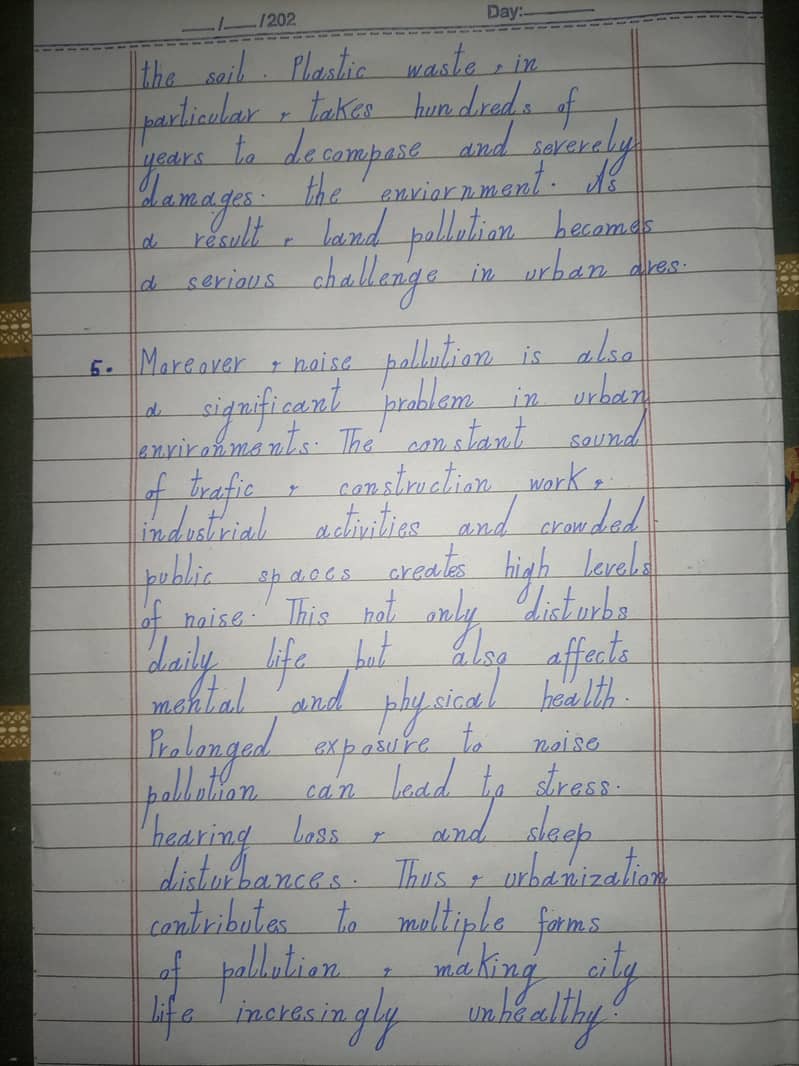 __/__/202 Day:____
the soil. Plastic waste, in
particular, takes hundreds of
years to decompase and severely
damages. the enviornment. As
a result, land pollution becomes
a serious challenge in urban ares.
5. Moreover, noise pollution is also
a significant problem in urban
environments. The constant sound
of trafic, construction work,
industrial activities and crowded
public spaces creates high levels
of noise. This not only disturbs
daily life but also affects
mental and physical health.
Prolonged exposure to noise
pollution can lead to stress.
hearing loss, and sleep
disturbances. Thus, urbanization
contributes to multiple forms
of pollution, making city
life incresingly unhealthy.